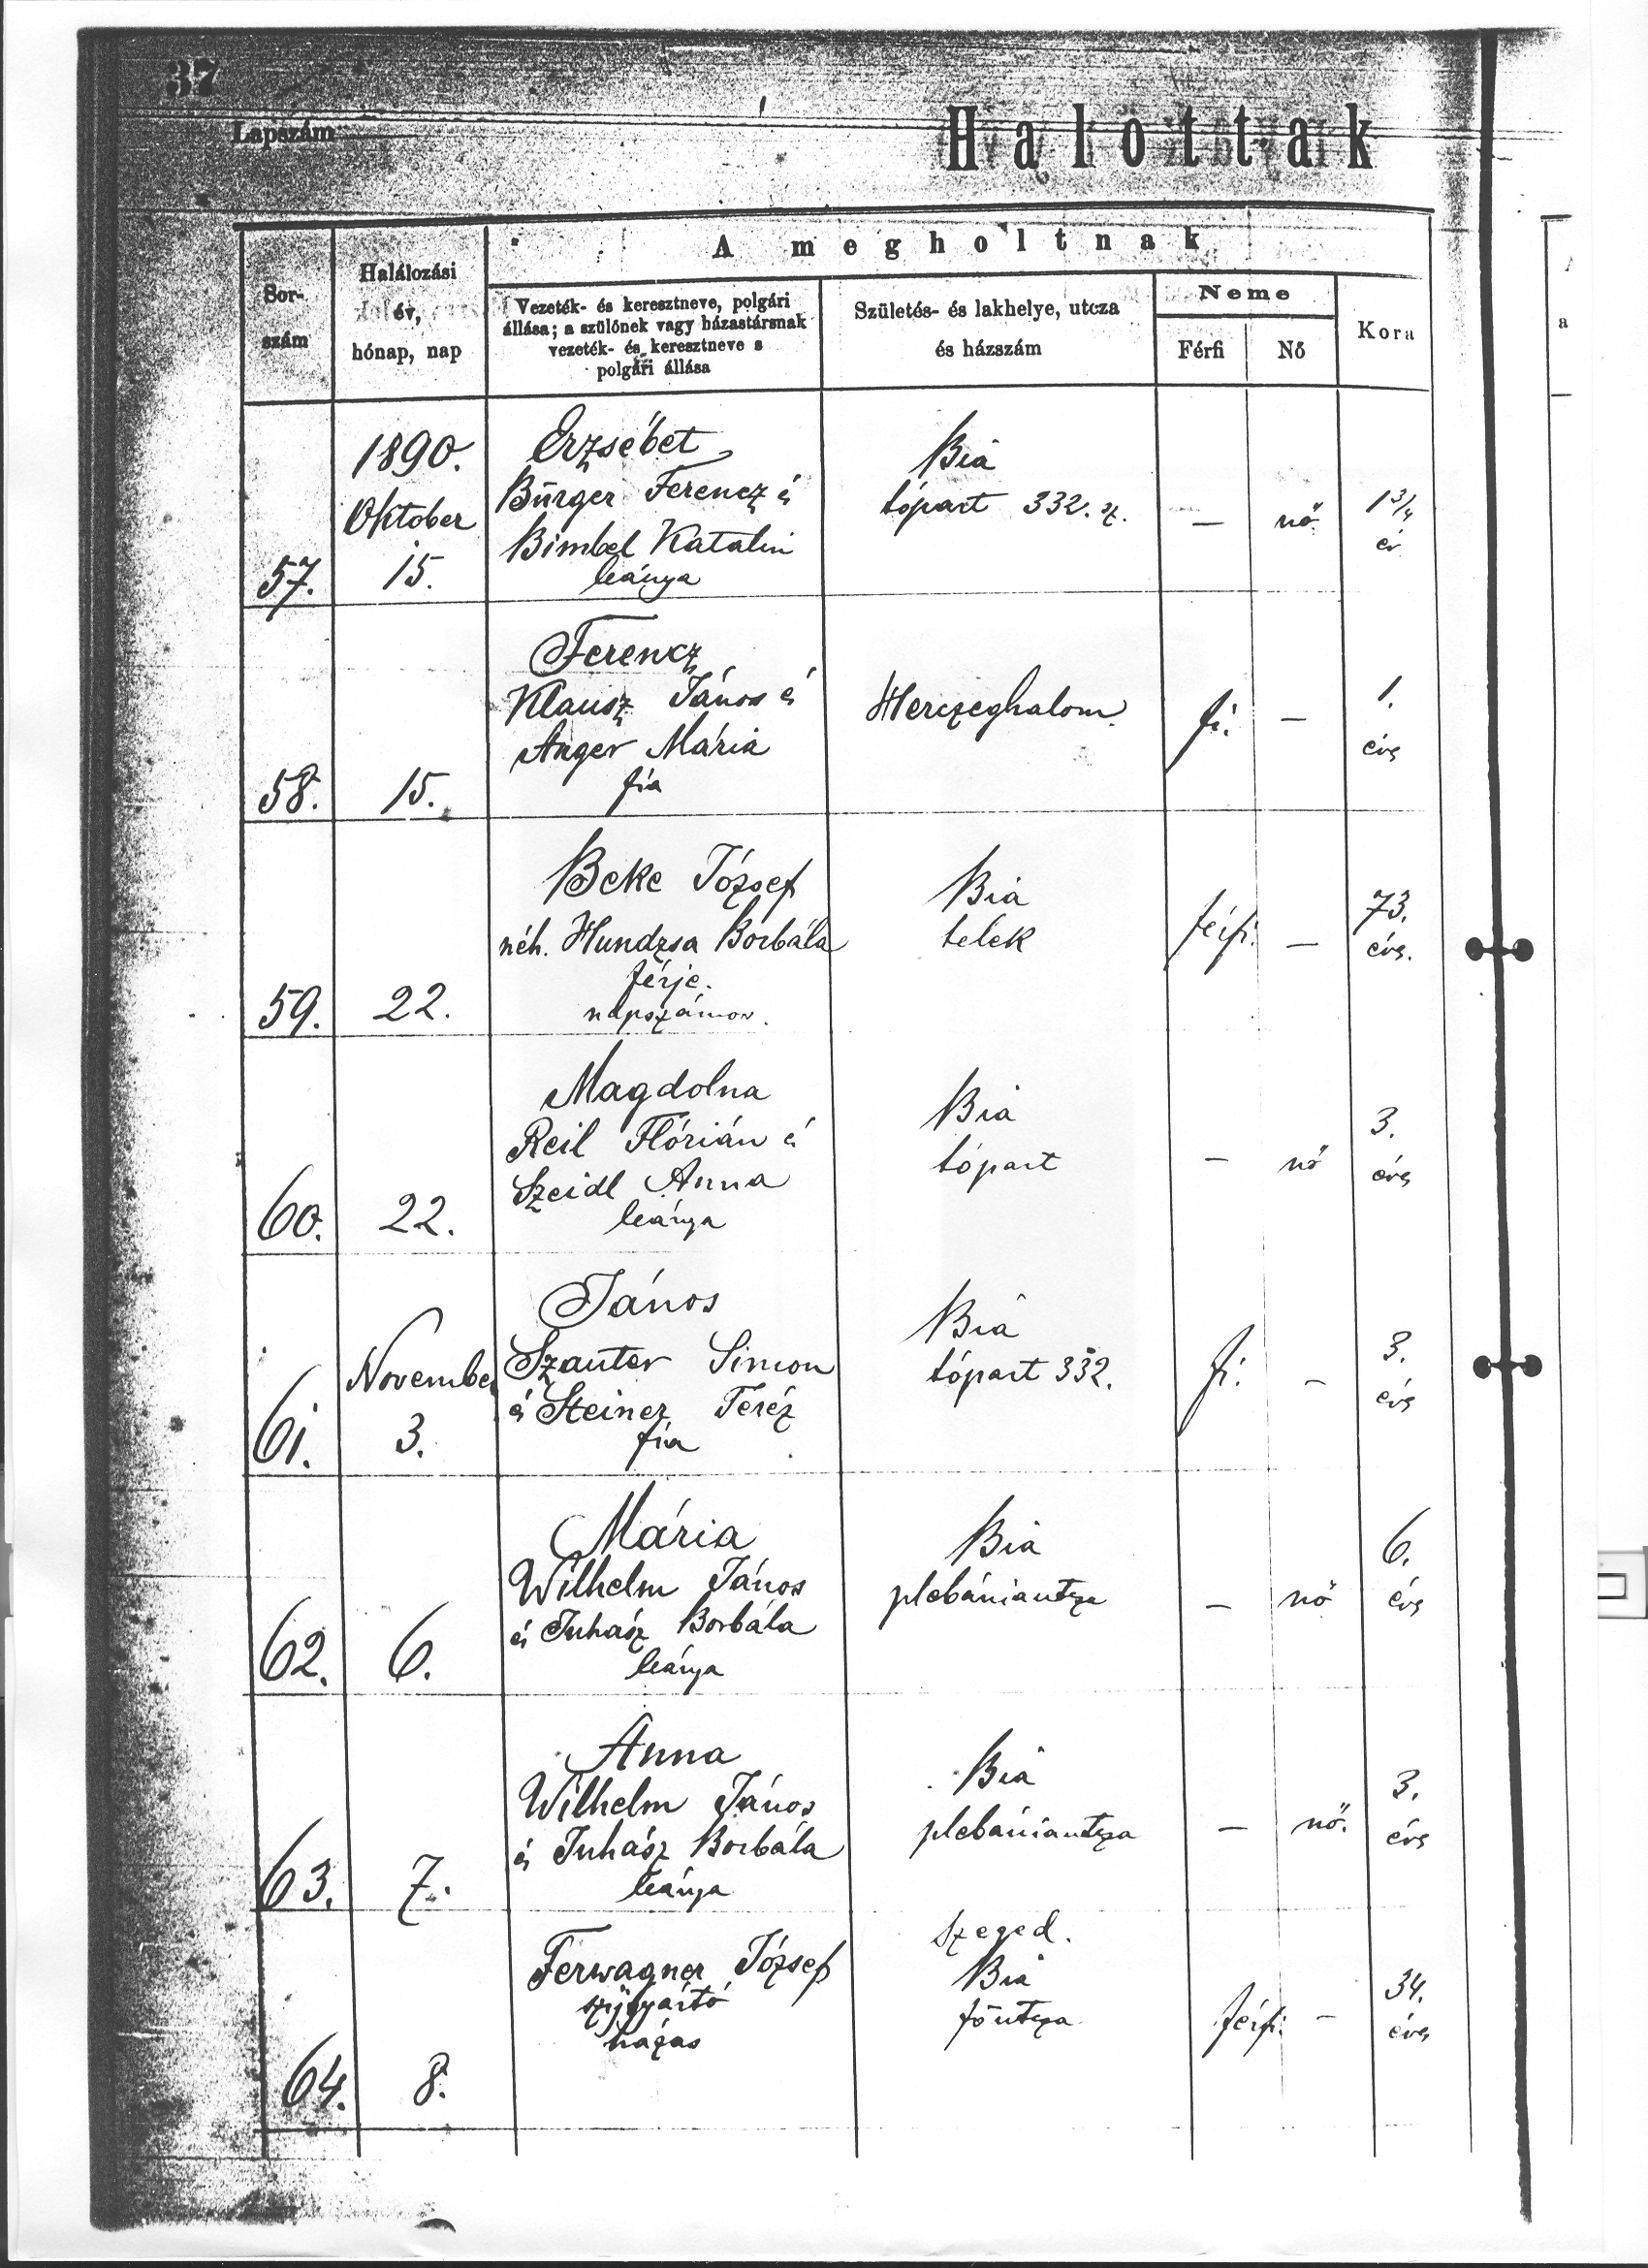 37
Lapszám
Halottak
A megholtnak
Sor-
szám
Halálozási
év,
hónap, nap
Vezeték- és keresztneve, polgári
állása; a szülőnek vagy házastársnak
vezeték- és keresztneve s
polgári állása
Születés- és lakhelye, utcza
és házszám
Neme
Férfi
Nő
Kora
a
57.
1890.
Oktober
15.
Erzsébet
Bürger Ferencz és
Bimbel Katalin
leánya
Bia
tópart 332. sz.
—
nő
1 3/4
év
58.
15.
Ferencz
Klausz János és
Anger Mária
fia
Herczeghalom.
fi.
—
1.
éves
59.
22.
Beke József
néh. Hundzsa Borbála
férje.
napszámos.
Bia
telek
férfi.
—
73.
éves.
60.
22.
Magdolna
Reil Flórián és
Szeidl Anna
leánya
Bia
tópart
—
nő
3.
éves
61.
November
3.
János
Szauter Simon
és Steiner Teréz
fia
Bia
tópart 332.
fi.
—
3.
éves
62.
6.
Mária
Wilhelm János
és Juhász Borbála
leánya
Bia
plebániautcza
—
nő
6.
éves
63.
7.
Anna
Wilhelm János
és Juhász Borbála
leánya
Bia
plebániautcza
—
nő.
3.
éves
64.
8.
Ferwagner József
szijgyártó
házas
Szeged.
Bia
főutcza
férfi.
—
34.
éves